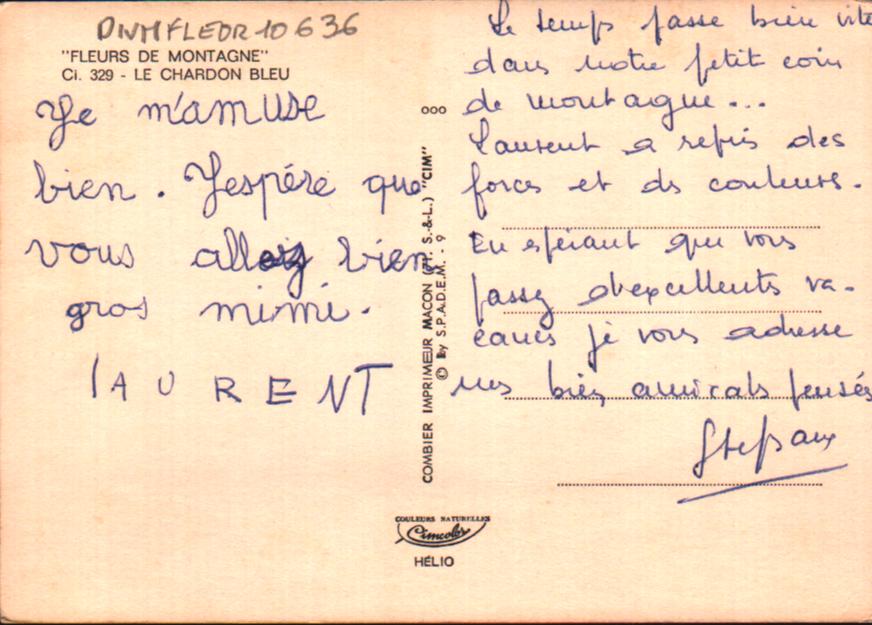 DNMFLEUR10636
"FLEURS DE MONTAGNE"
Ci. 329 - LE CHARDON BLEU
Je m'amuse
bien. J'espére que
vous allez bien
gros mimi.
lAURENT
ooo
COMBIER IMPRIMEUR MACON (71. S.-&-L.) "CIM"
© by S.P.A.D.E.M. - 9
Le temps passe bien vite
dans notre petit coin
de montagne...
Laurent a repris des
forces et ds couleurs.
En espérant que vous
passez d'excellents va-
cances je vous adresse
mes bien amicals pensés
COULEURS NATURELLES
Cimcolor
HÉLIO